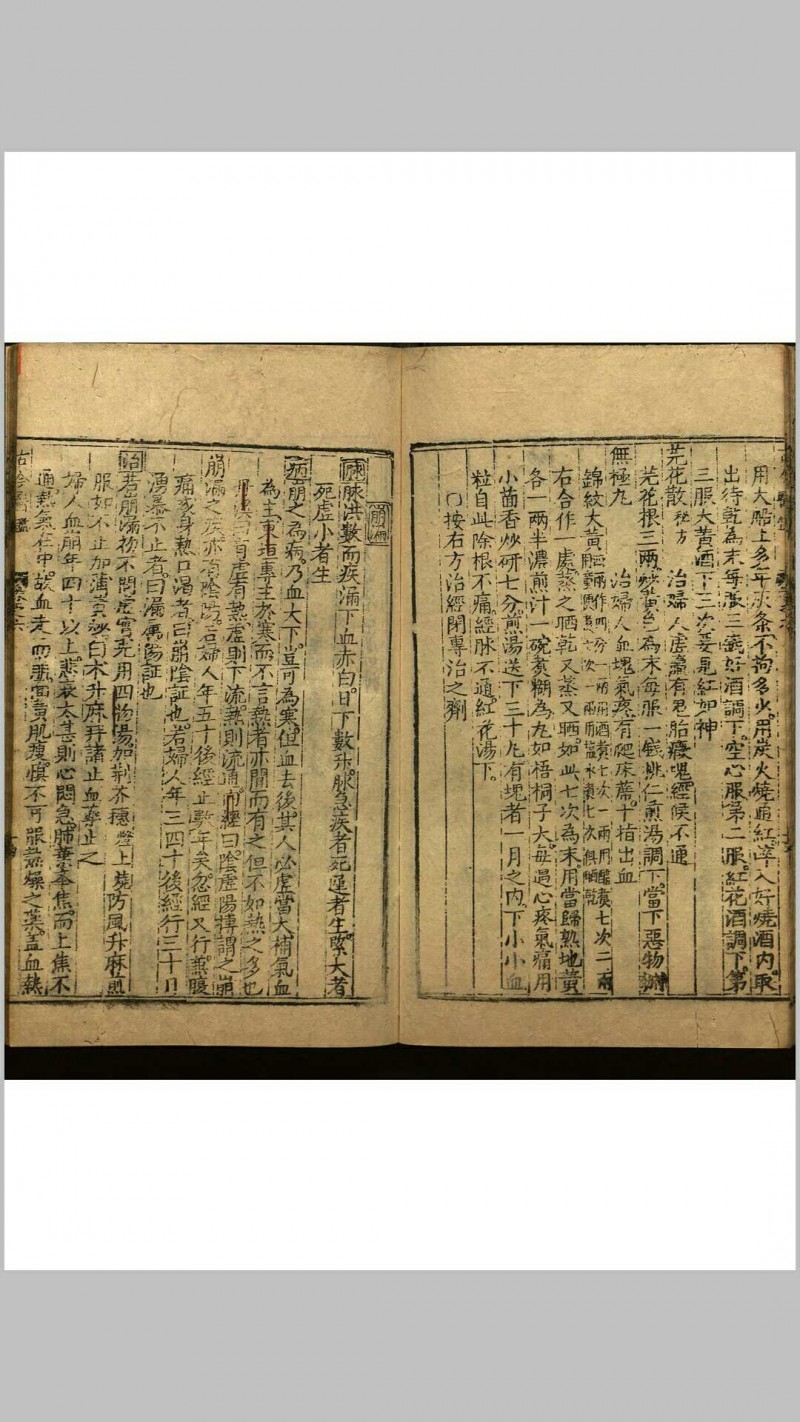 用大船上多年灰条不拘多少用炭火燒通紅淬入好燒酒內取
出待乾為末每服三錢好酒調下空心服第二服紅花酒調下第
三服大黃酒下三次要見紅如神
芫花散 秘方 治婦人虛羸有鬼胎癥塊經候不通
芫花根三兩炒黃色為末每服一錢桃仁煎湯調下當下惡物
無極丸 治婦人血塊氣疼有爬床蓆十指出血
錦紋大黃
右合作一處蒸之晒乾又蒸又晒如此七次為末用當歸熟地黃
各一兩半濃煎汁一碗煮糊為丸如梧桐子大每遇心疼氣痛用
小茴香炒研七分煎湯送下三十丸有塊者一月之內下小小血
粒自此除根不痛經脉不通紅花湯下
○按右方治經閉專治之劑
崩漏
脉洪數而疾漏下血赤白日下數升脉急疾者死遲者生緊大者
死虛小者生
病崩之為病乃血大下豈可為寒但血去後其人必虛當大補氣血
為主東垣專主於寒而不言熱者亦間而有之但不如熱之多也
有虛有熱虛則下流熱則流通經曰陰虛陽搏謂之崩
崩漏之疾亦有陰陽若婦人年五十後經止數年矣忽經又行兼腹
痛或身熱口渴者曰崩陰証也若婦人年三四十後經行三十日
湧暴不止者曰漏屬陽証也
治若崩漏初不問虛實先用四物湯加荊芥穗發上燒防風升麻煎
服如不止加蒲黃炒白朮升麻并諸止血藥止之
婦人血崩年四十以上悲哀太甚則心悶急肺葉焦而上焦不
通熱氣在中故血走而崩面黃肌瘦慎不可服燥之藥蓋血熱